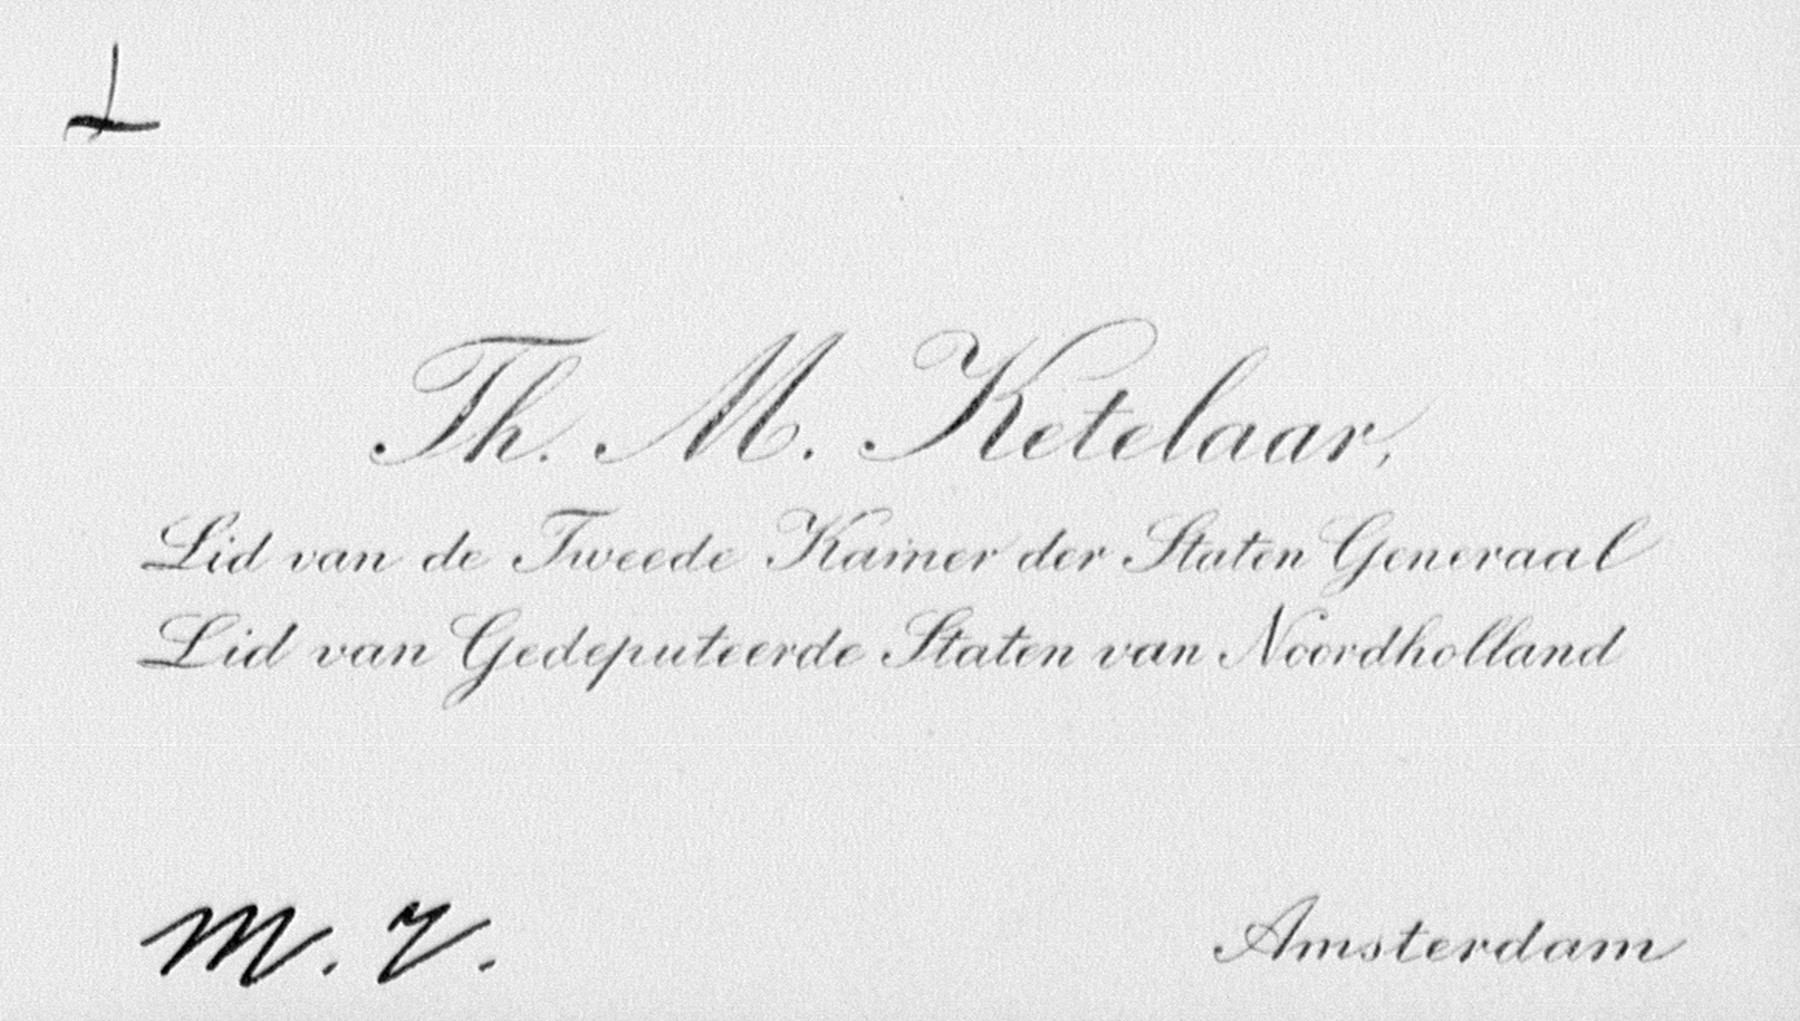 Th. M. Ketelaar,
Lid van de Tweede Kamer der Staten Generaal
Lid van Gedeputeerde Staten van Noordholland
m. r.
Amsterdam